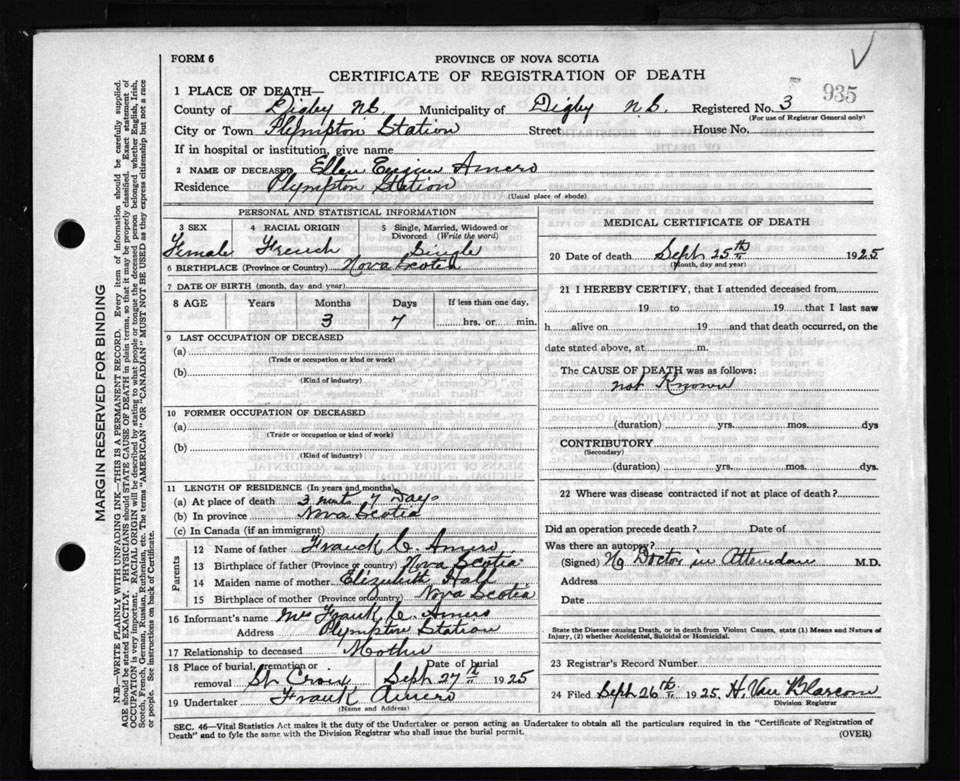 FORM 6
PROVINCE OF NOVA SCOTIA
CERTIFICATE OF REGISTRATION OF DEATH
935
1 PLACE OF DEATH—
County of Digby N.S. Municipality of Digby N.S. Registered No. 3
(For use of Registrar General only)
City or Town Plympton Station Street House No.
If in hospital or institution, give name
2 NAME OF DECEASED Ellen Amero
Residence Plympton Station
(Usual place of abode)
PERSONAL AND STATISTICAL INFORMATION
3 SEX 4 RACIAL ORIGIN 5 Single, Married, Widowed or Divorced (Write the word)
Female French Single
6 BIRTHPLACE (Province or Country) Nova Scotia
7 DATE OF BIRTH (month, day and year)
8 AGE Years Months Days If less than one day,
3 7 hrs. or min.
9 LAST OCCUPATION OF DECEASED
(a)
(Trade or occupation or kind or work)
(b)
(Kind of industry)
10 FORMER OCCUPATION OF DECEASED
(a)
(Trade or occupation or kind of work)
(b)
(Kind of industry)
11 LENGTH OF RESIDENCE (In years and months)
(a) At place of death 3 7 Days
(b) In province Nova Scotia
(c) In Canada (if an immigrant)
Parents
12 Name of father Franck C. Amero
13 Birthplace of father (Province or country) Nova Scotia
14 Maiden name of mother Elizabeth Hall
15 Birthplace of mother (Province or Country) Nova Scotia
16 Informant's name Mrs Frank C. Amero
Address Plympton Station
17 Relationship to deceased Mother
18 Place of burial, cremation or removal St Croix Date of burial Sept 27th 1925
19 Undertaker Frank Amero
(Name and Address)
MEDICAL CERTIFICATE OF DEATH
20 Date of death Sept 25th 1925
(Month, day and year)
21 I HEREBY CERTIFY, that I attended deceased from
19 to 19 that I last saw
h alive on 19 and that death occurred, on the
date stated above, at m.
The CAUSE OF DEATH was as follows:
not Known
(duration) yrs. mos. dys
CONTRIBUTORY
(Secondary)
(duration) yrs. mos. dys.
22 Where was disease contracted if not at place of death?
Did an operation precede death? Date of
Was there an autopsy?
(Signed) No Doctor in Attendance M.D.
Address
Date
State the Disease causing Death, or in death from Violent Causes, state (1) Means and Nature of
Injury, (2) whether Accidental, Suicidal or Homicidal.
23 Registrar's Record Number
24 Filed Sept 26th 1925 H. Van Blarcom
Division Registrar
SEC. 46—Vital Statistics Act makes it the duty of the Undertaker or person acting as Undertaker to obtain all the particulars required in the "Certificate of Registration of
Death" and to fyle the same with the Division Registrar who shall issue the burial permit. (OVER)
MARGIN RESERVED FOR BINDING
N.B.—WRITE PLAINLY WITH UNFADING INK—THIS IS A PERMANENT RECORD. Every item of information should be carefully supplied.
AGE should be stated EXACTLY. PHYSICIANS should STATE CAUSE OF DEATH in plain terms, so that it may be properly classified. Exact statement of
OCCUPATION is very important. RACIAL ORIGIN will be described by stating to what people or tongue the deceased person belonged whether English, Irish,
Scotch, French, German, Russian, Ruthenian, etc. The terms "AMERICAN" OR "CANADIAN" MUST NOT BE USED as they express citizenship but not a race
or people. See instructions on back of Certificate.